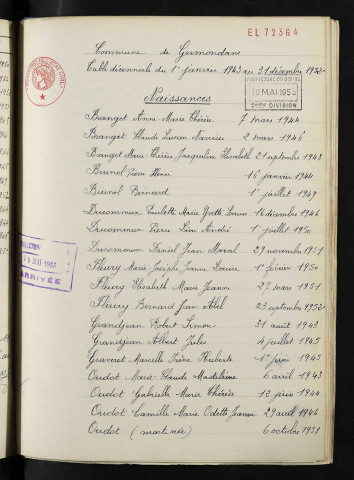 EL 72364
Commune de Germondans
Table décennale du 1er janvier 1943 au 31 décembre 1952
19 MAI 1953
2ème DIVISION
Naissances
Branget Anne Marie Thérèse 7 mars 1944
Branget Claude Lucien Narcisse 2 mars 1946
Branget Marie Thérèse Jacqueline Elisabeth 21 septembre 1948
Brunol Pierre Henri 16 janvier 1944
Brunol Bernard 1er juillet 1949
Ducommun Paulette Marie Yvette Louise 16 décembre 1946
Ducommun Pierre Luc André 1er juillet 1950
Ducommun Daniel Jean Marcel 29 novembre 1951
Fleury Marie Josèphe Jeanne Louise 1er février 1950
Fleury Elisabeth Marie Jeanne 27 mars 1951
Fleury Bernard Jean Abel 23 septembre 1952
Grandjean Robert Simon 31 août 1943
Grandjean Albert Jules 4 juillet 1945
Graveret Marcelle Irène Huberte 1er juin 1945
Oudot Marie-Claude Madeleine 6 avril 1943
Oudot Gabrielle Marie Thérèse 12 juin 1944
Oudot Camille Marie Odette Jeanne 29 avril 1946
Oudot (mort-née) 6 octobre 1951
ARRIVÉE